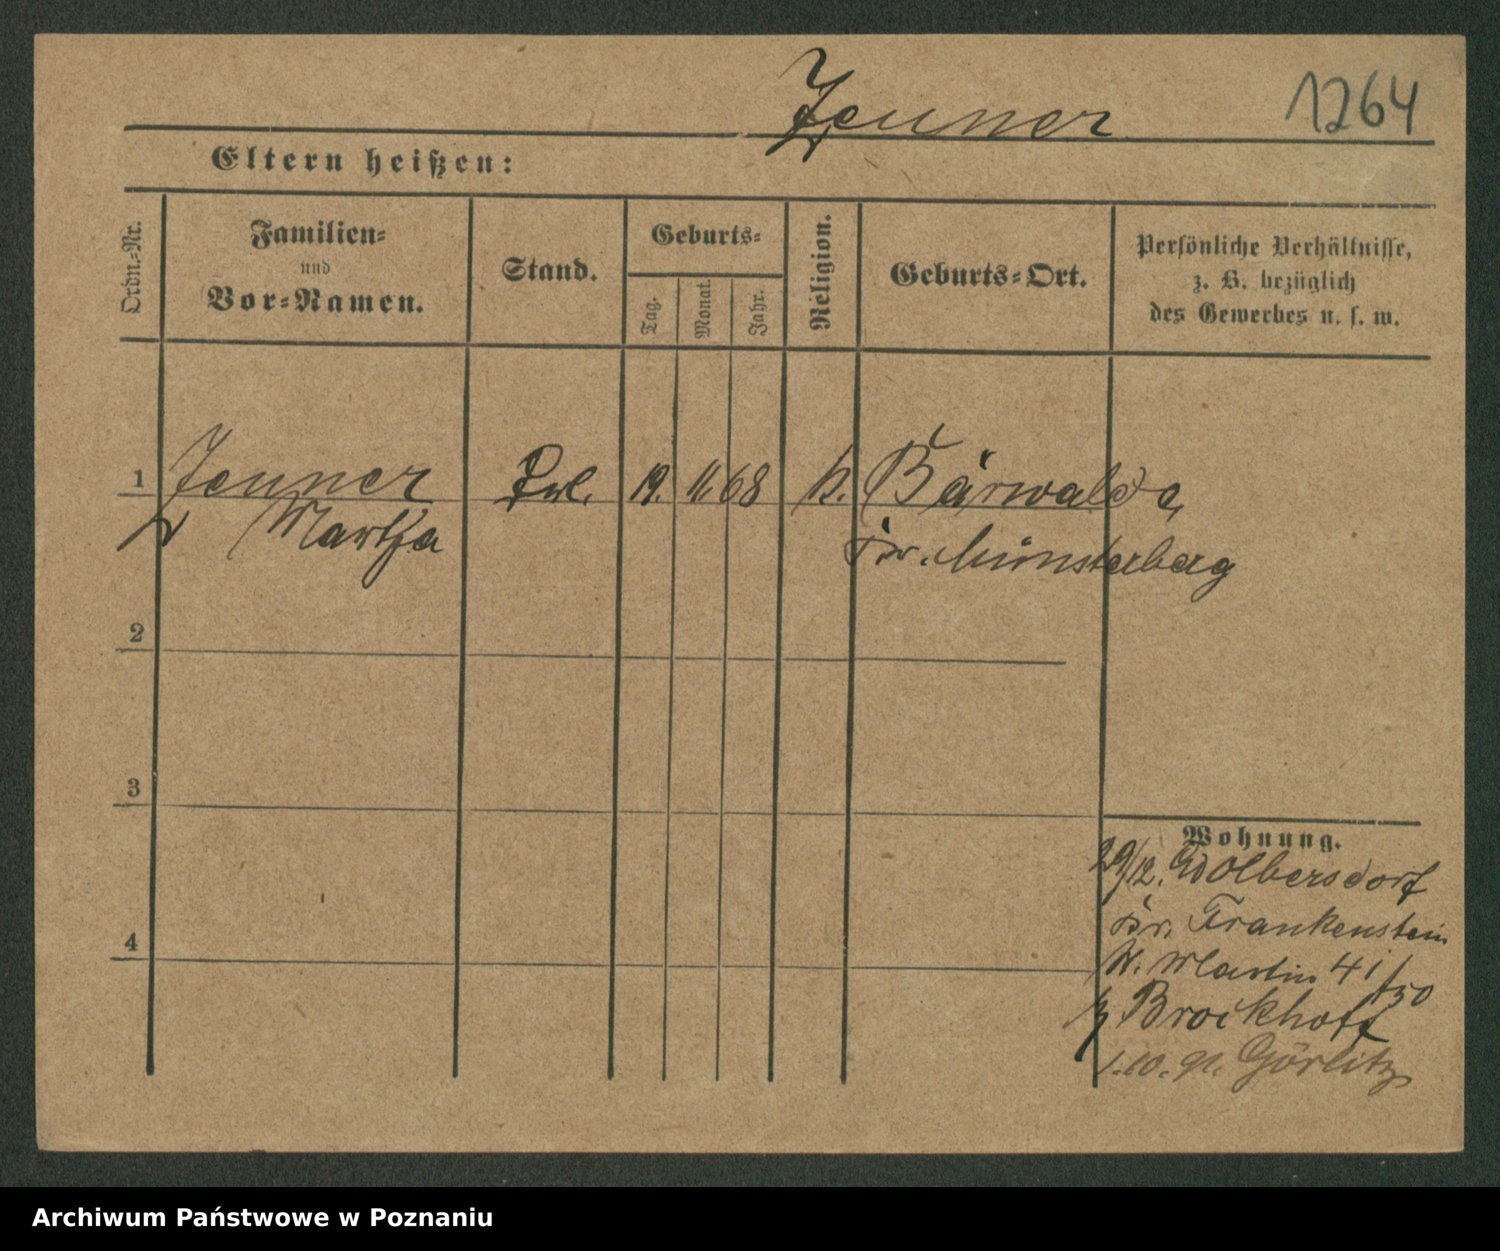 Jenner
1264
Eltern heißen:
Ordn.-Nr.
Familien-
und
Vor-Namen.
Stand.
Geburts-
Tag.
Monat.
Jahr.
Religion.
Geburts-Ort.
Persönliche Verhältnisse,
z. B. bezüglich
des Gewerbes u. s. w.
1
Jenner
Martha
19. 11. 68
k.
Bärwalde,
Kr. Münsterberg
2
3
4
Wohnung.
29/12. Wolbersdorf
Kr. Frankenstein
St. Martin 41/50
Brockhoff
1.10.91. Görlitz
Archiwum Państwowe w Poznaniu